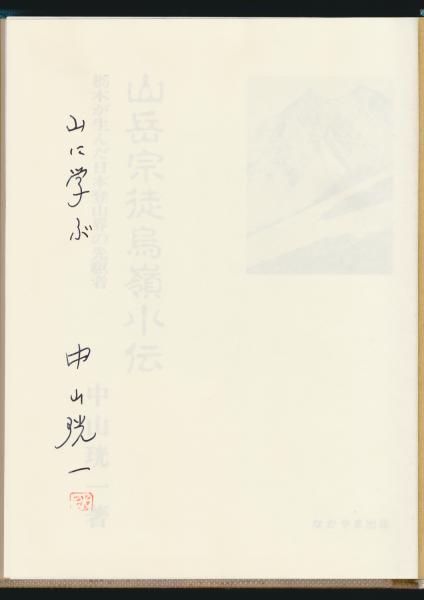 山岳宗徒烏嶺小伝
栃木が生んだ日本登山界の先駆者
中山珖一著
なかやま出版
山に学ぶ
中山珖一